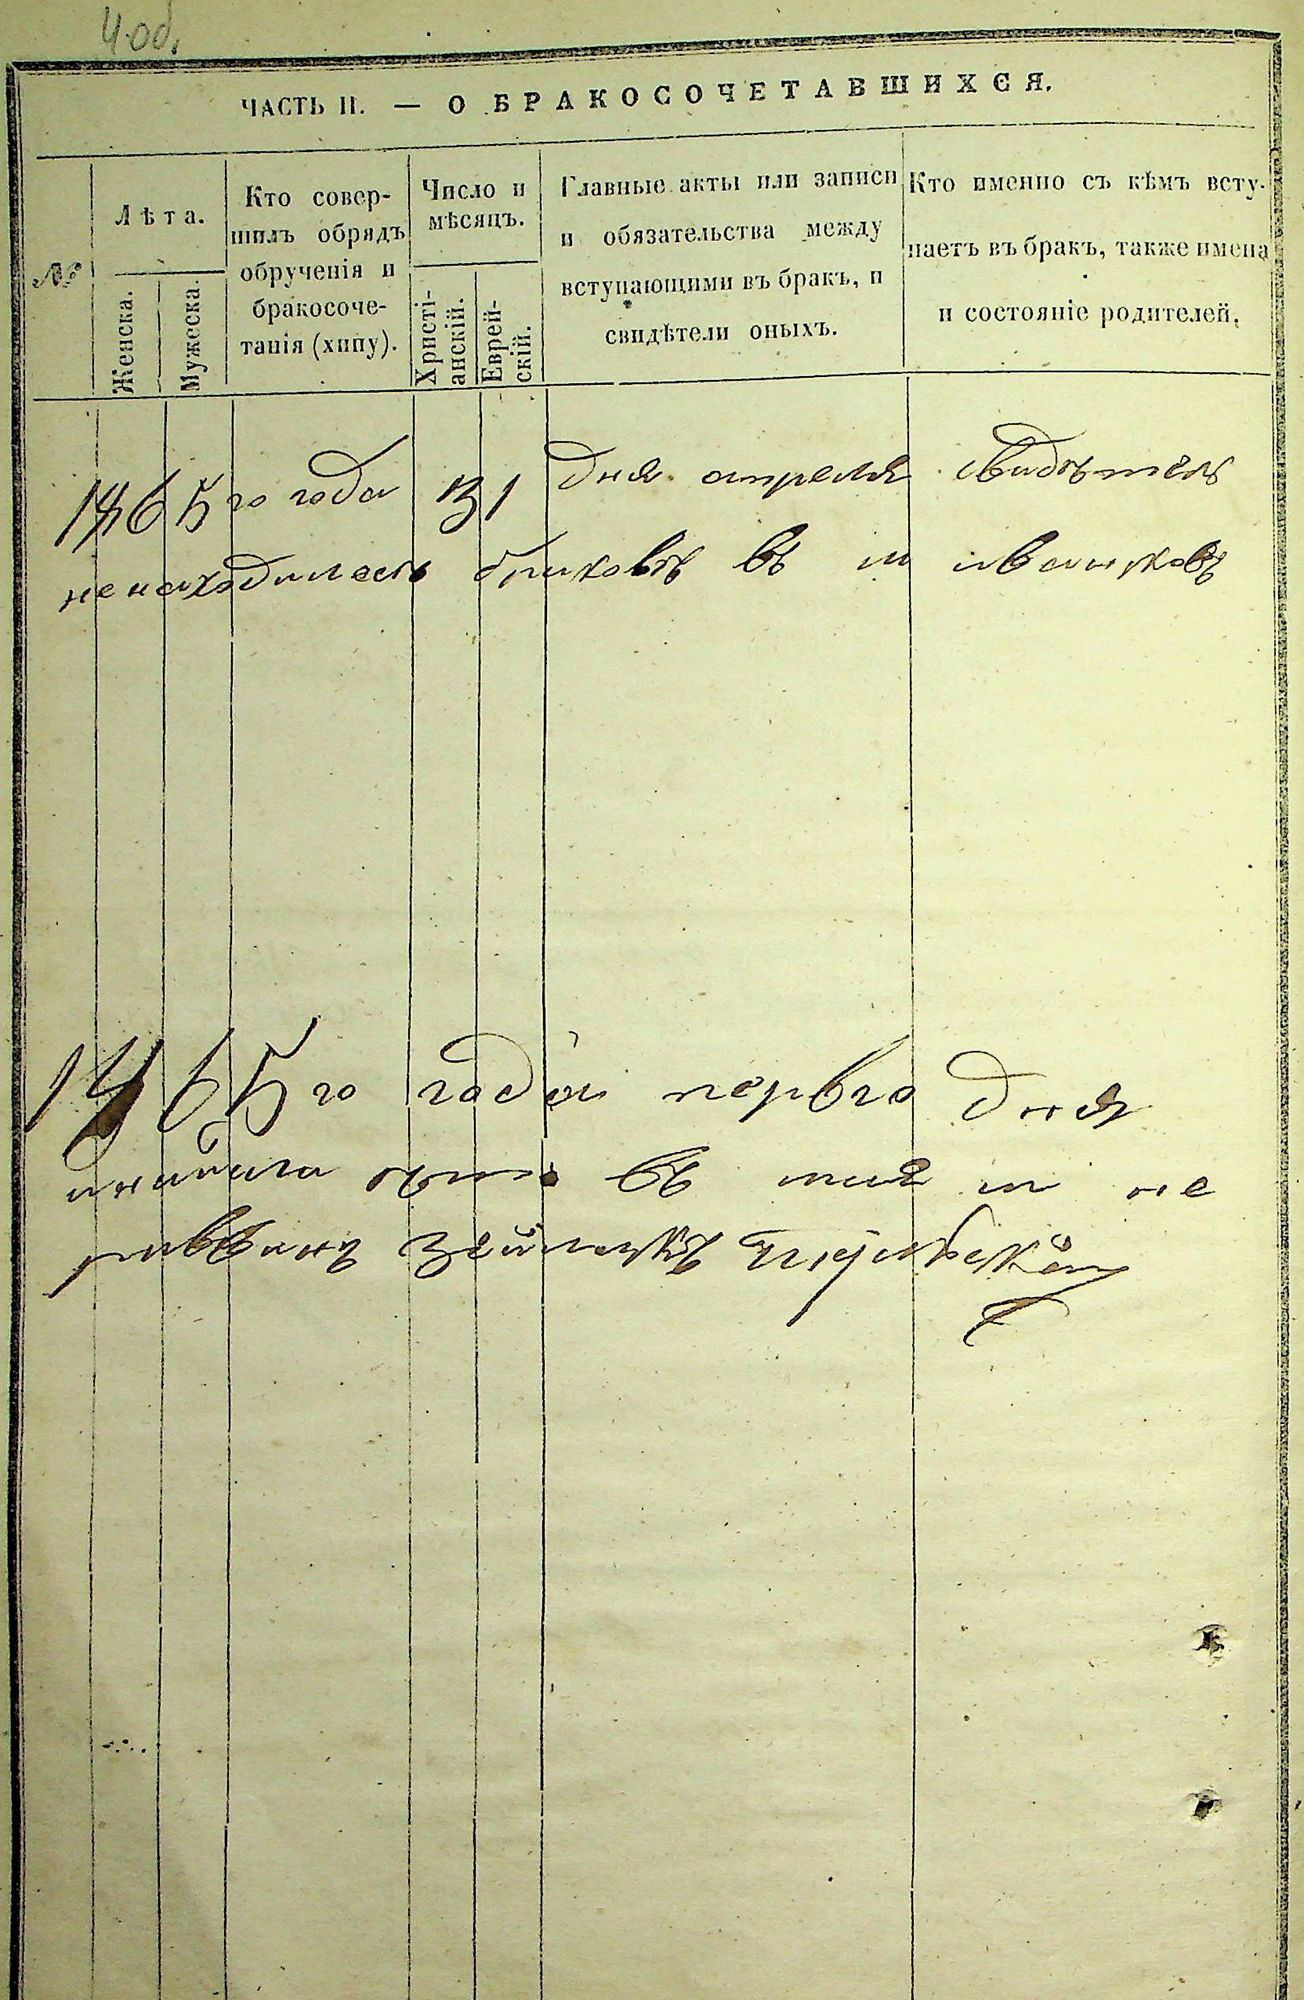 4 об.
ЧАСТЬ II. — О БРАКОСОЧЕТАВШИХСЯ.
№
Лѣта.
Женска.
Мужеска.
Кто совер-
шилъ обрядъ
обрученія и
бракосоче-
танія (хипу).
Число и
мѣсяцъ.
Христі-
анскій.
Еврей-
скій.
Главные акты или записи
и обязательства между
вступающими въ бракъ, и
свидѣтели оныхъ.
Кто именно съ кѣмъ всту-
паетъ въ бракъ, также имена
и состояніе родителей.
1865го года 31 дня апреля свидѣтель
ненаходилась браковъ въ м ивашковъ
1865го года перваго дня
въ не